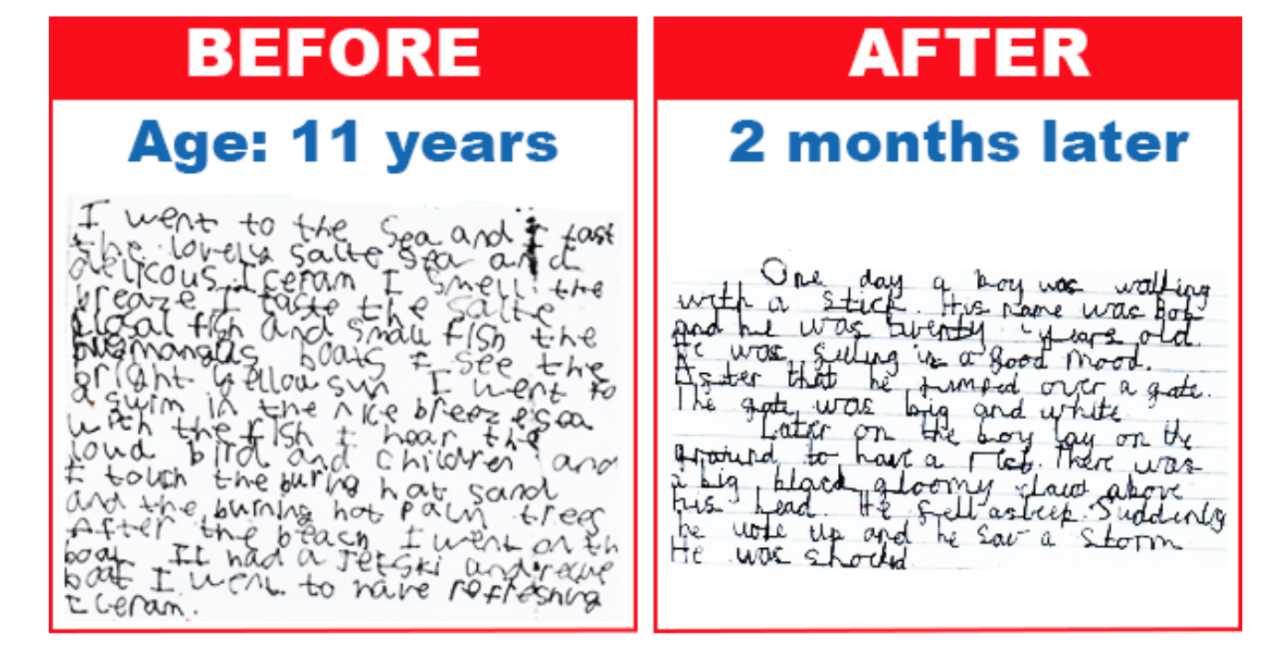 BEFORE
Age: 11 years
I went to the Sea and I tast
the lovely salte Sea and
delicous Iceram I smell the
breaze I taste the salte
fish and small fish the
boats I see the
bright yellow sun I went to
a swim in the nice breeze sea
with the fish I hear the
loud bird and children and
I touh the burng hot sand
and the burning hot palm trees
After the beach I went on th
boat It had a Jetski and
boat I went to have refreshing
Iceram.
AFTER
2 months later
One day a boy was walking
with a stick. His name was Bob
and he was twenty years old.
He was in a good mood.
After that he jumped over a gate.
The gate was big and white
Later on the boy lay on the
ground to have a There was
a big black gloomy above
his head. He fell asleep. Suddenly
he woke up and he saw a storm
He was